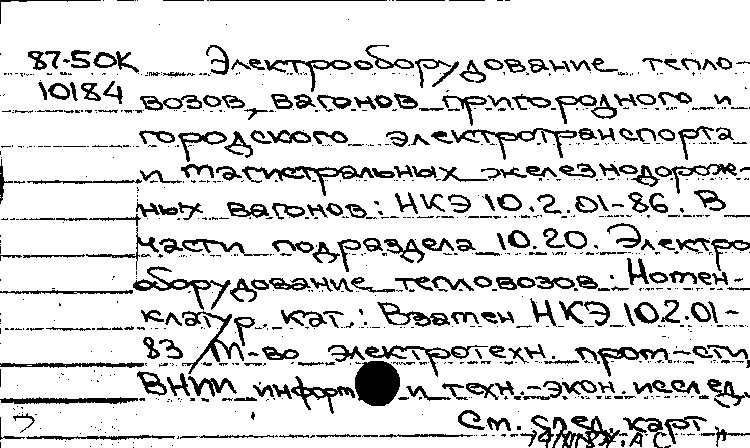 87-50К Электрооборудование тепло-
10184 возов, вагонов пригородного и
городского электротранспорта
и магистральных железнодорож-
ных вагонов: НКЭ 10.2.01-86. В
части подраздела 10.20. Электро
оборудование тепловозов: Номен-
клатур. кат.: Взамен НКЭ 10.2.01-
83 / М-во электротехн. пром-сти,
ВНИИ информ и техн.-экон. исслед.
См. след. карт